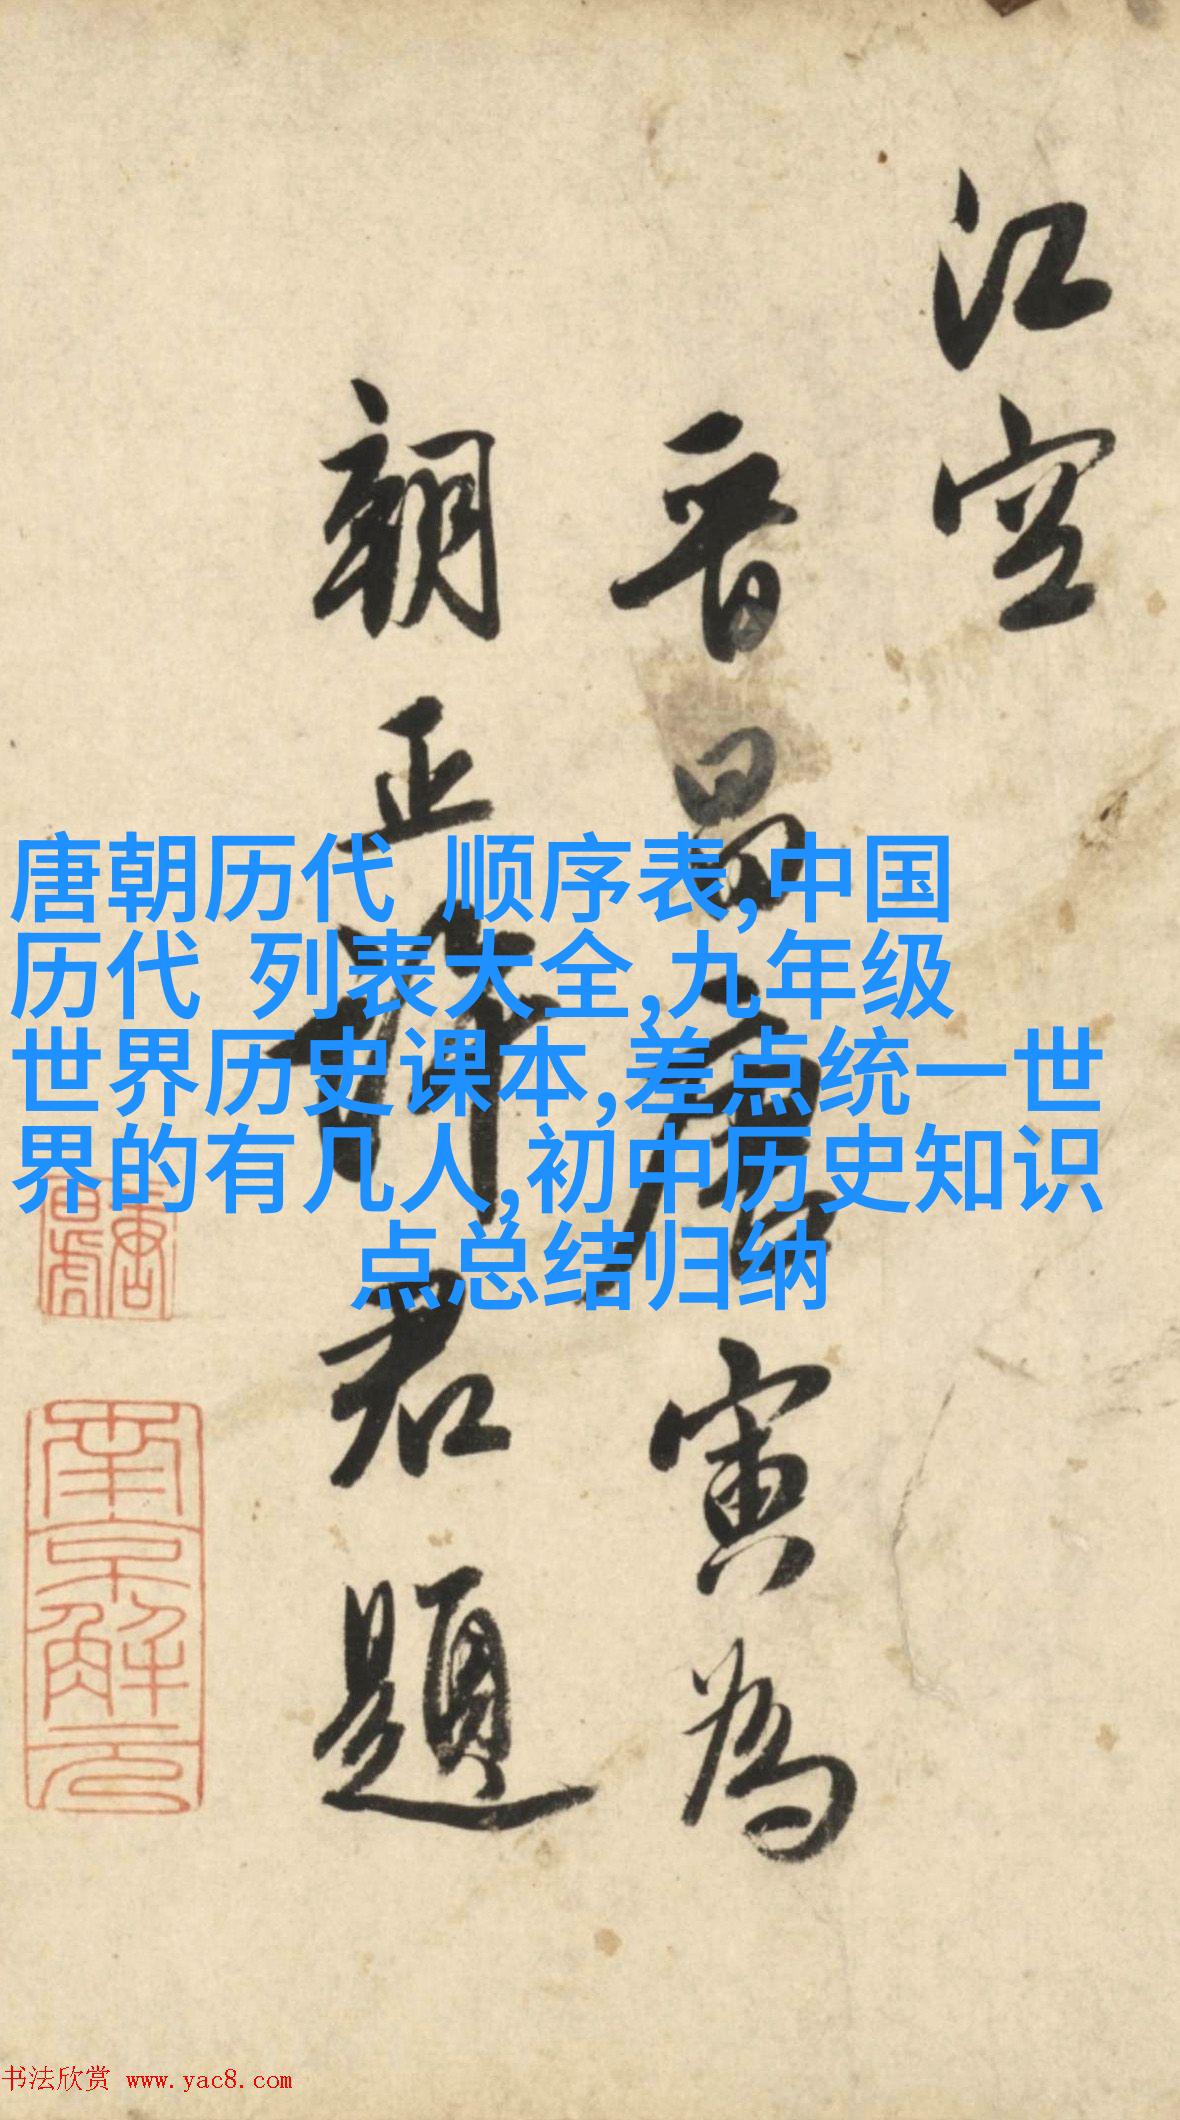 江空
晋昌唐寅为
朝正许君题
唐朝历代 顺序表,中国
历代 列表大全,九年级
世界历史课本,差点统一世
界的有几人,初中历史知识
点总结归纳
南京解元
书法欣赏 www.yac8.com